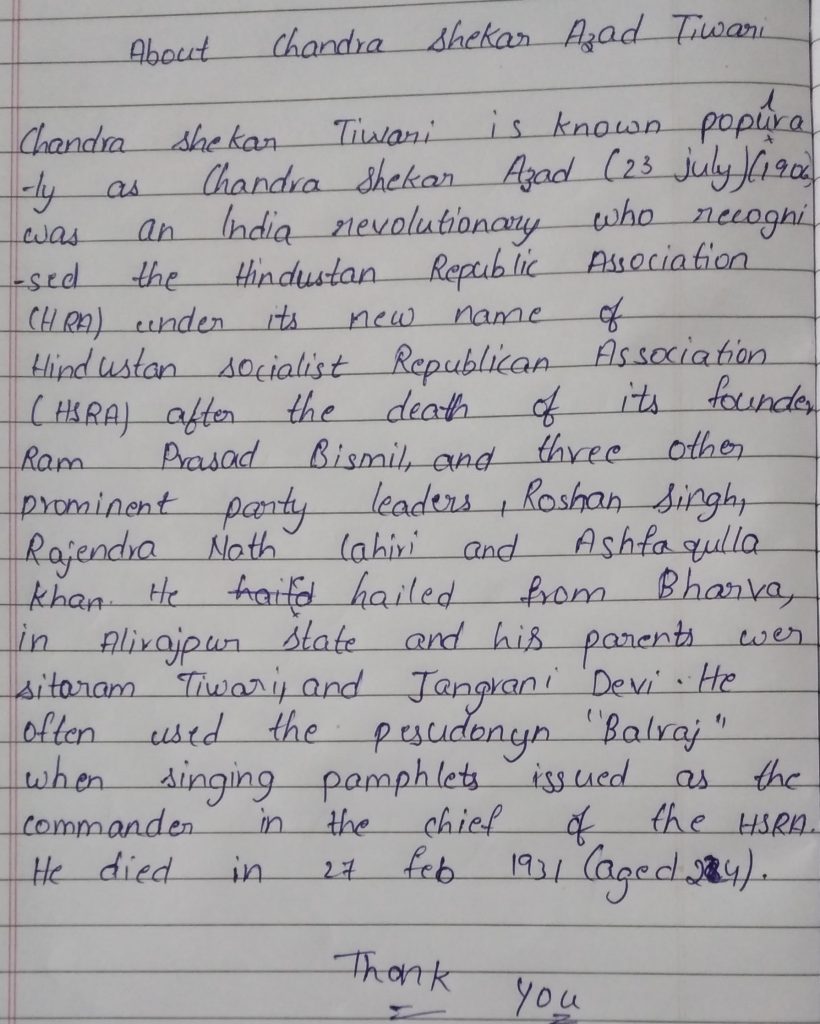 About Chandra Shekar Azad Tiwari
Chandra Shekar Tiwari is known popula
-ly as Chandra Shekar Azad (23 july)(1906)
was an India revolutionary who recogni
-sed the Hindustan Republic Association
(HRA) under its new name of
Hindustan socialist Republican Association
(HSRA) after the death of its founder
Ram Prasad Bismil, and three other
prominent party leaders, Roshan Singh,
Rajendra Nath Lahiri and Ashfaqulla
khan. He hailed from Bharva,
in Alirajpur State and his parents wer
sitaram Tiwari, and Jangrani Devi. He
often used the pesudonyn "Balraj"
when singing pamphlets issued as the
commander in the chief of the HSRA.
He died in 27 feb 1931 (aged 24).
Thank you